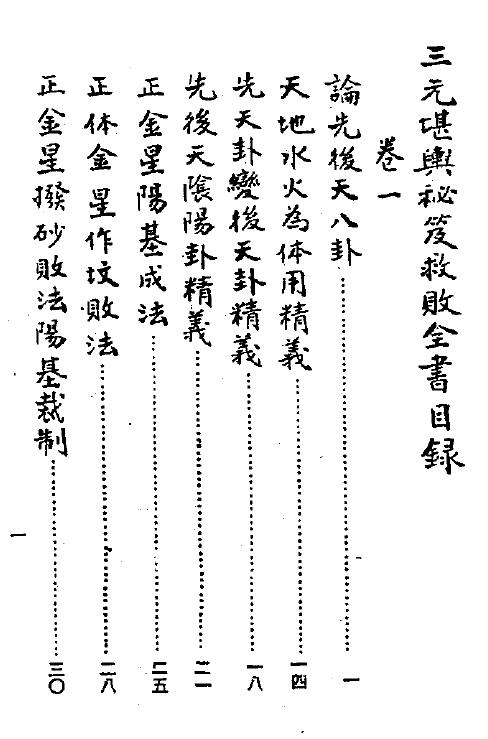 三元堪輿秘笈救敗全書目錄
卷一
論先後天八卦……一
天地水火為体用精義……一四
先天卦變後天卦精義……一八
先後天陰陽卦精義……二一
正金星陽基成法……二五
正体金星作坟敗法……二八
正金星撥砂敗法陽基裁制……三〇
一